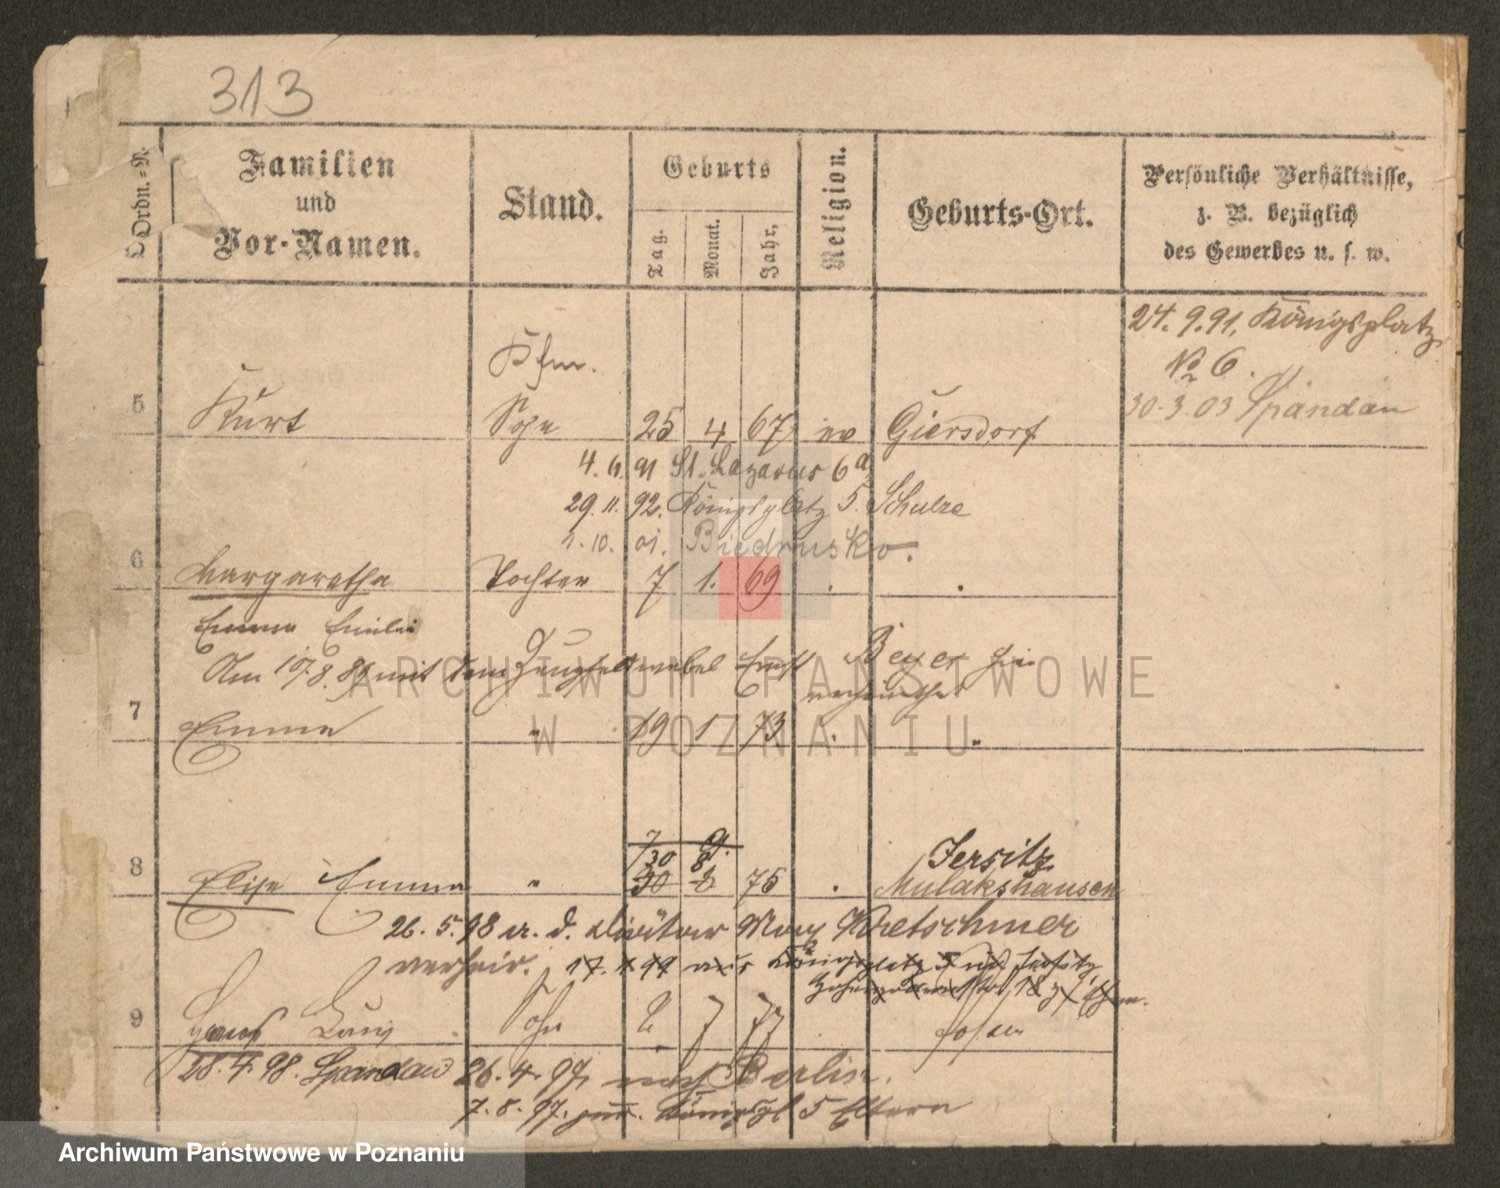 313
Ordn.-N.
Familien
und
Vor-Namen.
Stand.
Geburts
Tag.
Monat.
Jahr.
Religion.
Geburts-Ort.
Persönliche Verhältnisse,
z. B. bezüglich
des Gewerbes u. s. w.
24. 9. 91. Königsplatz
No 6.
30. 3. 03 Spandau
Kfm.
5 Kurt Sohn 25 4 67 ev Giersdorf
91 St. Lazarus 6a
29. 11. 92. Königsplatz 5. Schulze
1. 10. 01. Biedrusko.
6 Margaretha Tochter 7 1. 69 . .
Emma Emilie
Am mit dem Zeugfeldwebel Ernst Beyer
7 Emma " 19 1 73 . "
7 9.
30 8 Jersitz
8 Elise Emma " 30 8 75 . Mulakshausen
26. 5. 98 m. d. Diätar Max Kretschmer
verheir. 17. 1. 99 aus Königsplatz 5 Jersitz
9 Hans Sohn 2 7 77 Posen
28. 4. 98. Spandau 26. 4. 97. nach Berlin.
7. 8. 97. zur. Königspl 5 Eltern
ARCHIWUM PAŃSTWOWE
W POZNANIU
Archiwum Państwowe w Poznaniu